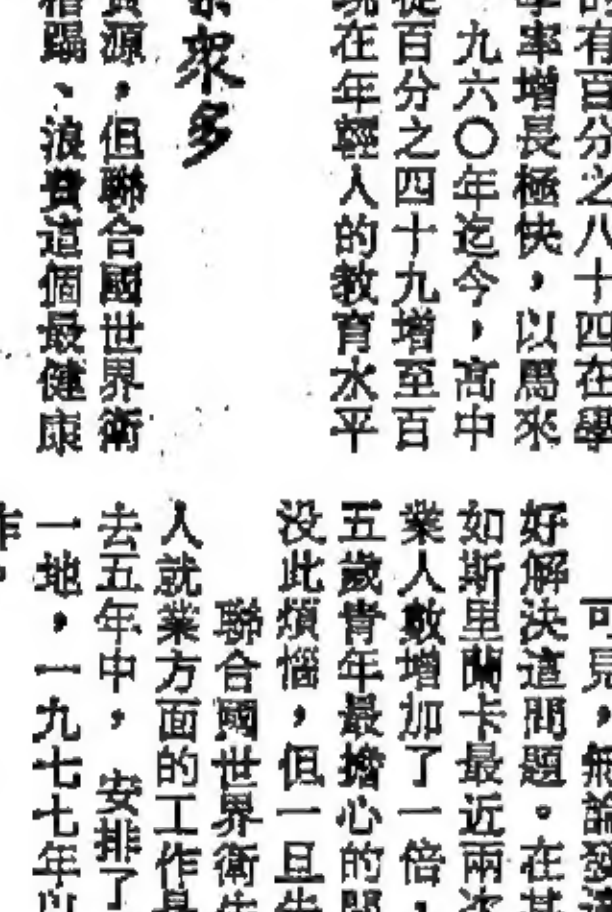 的有百分之八十四在學
學率增長極快，以馬來
九六〇年迄今，高中
從百分之四十九增至百
現在年輕人的教育水平
眾多
資源，但聯合國世界衛
蹋、浪費這個最健康
可見，無論發達
好解決這問題。在某
如斯里蘭卡最近兩次
業人數增加了一倍，
五歲青年最擔心的問
没此煩惱，但一旦失
聯合國世界衛生
人就業方面的工作是
去五年中，安排了
一地，一九七七年以
作，